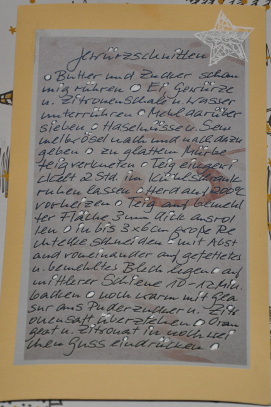 Gewürzschnitten
o Butter und Zucker schau
mig rühren o Ei, Gewürze
u. Zitronenschale u. Wasser
unterrühren o Mehl darüber
sieben o Haselnüsse u. Sem
melbrösel nach und nach dazu
geben o zu glattem Mürbe-
teig verkneten o Teig eingewi
ckelt 2 Std. im Kühlschrank
ruhen lassen o Herd auf 200°C
vorheizen o Teig auf bemehl
ter Fläche 3 mm dick ausrol
len o in bis 3x6cm große Re
chtecke schneiden - mit Abst
and voneinander auf gefettetes
u. bemehltes Blech legen o auf
mittlerer Schiene 10-12 Min.
backen o noch warm mit Gla
sur aus Puderzucker u. Zitr
onensaft überziehen o Oran
geat u. Zitronat in noch wei
chen Guss eindrücken